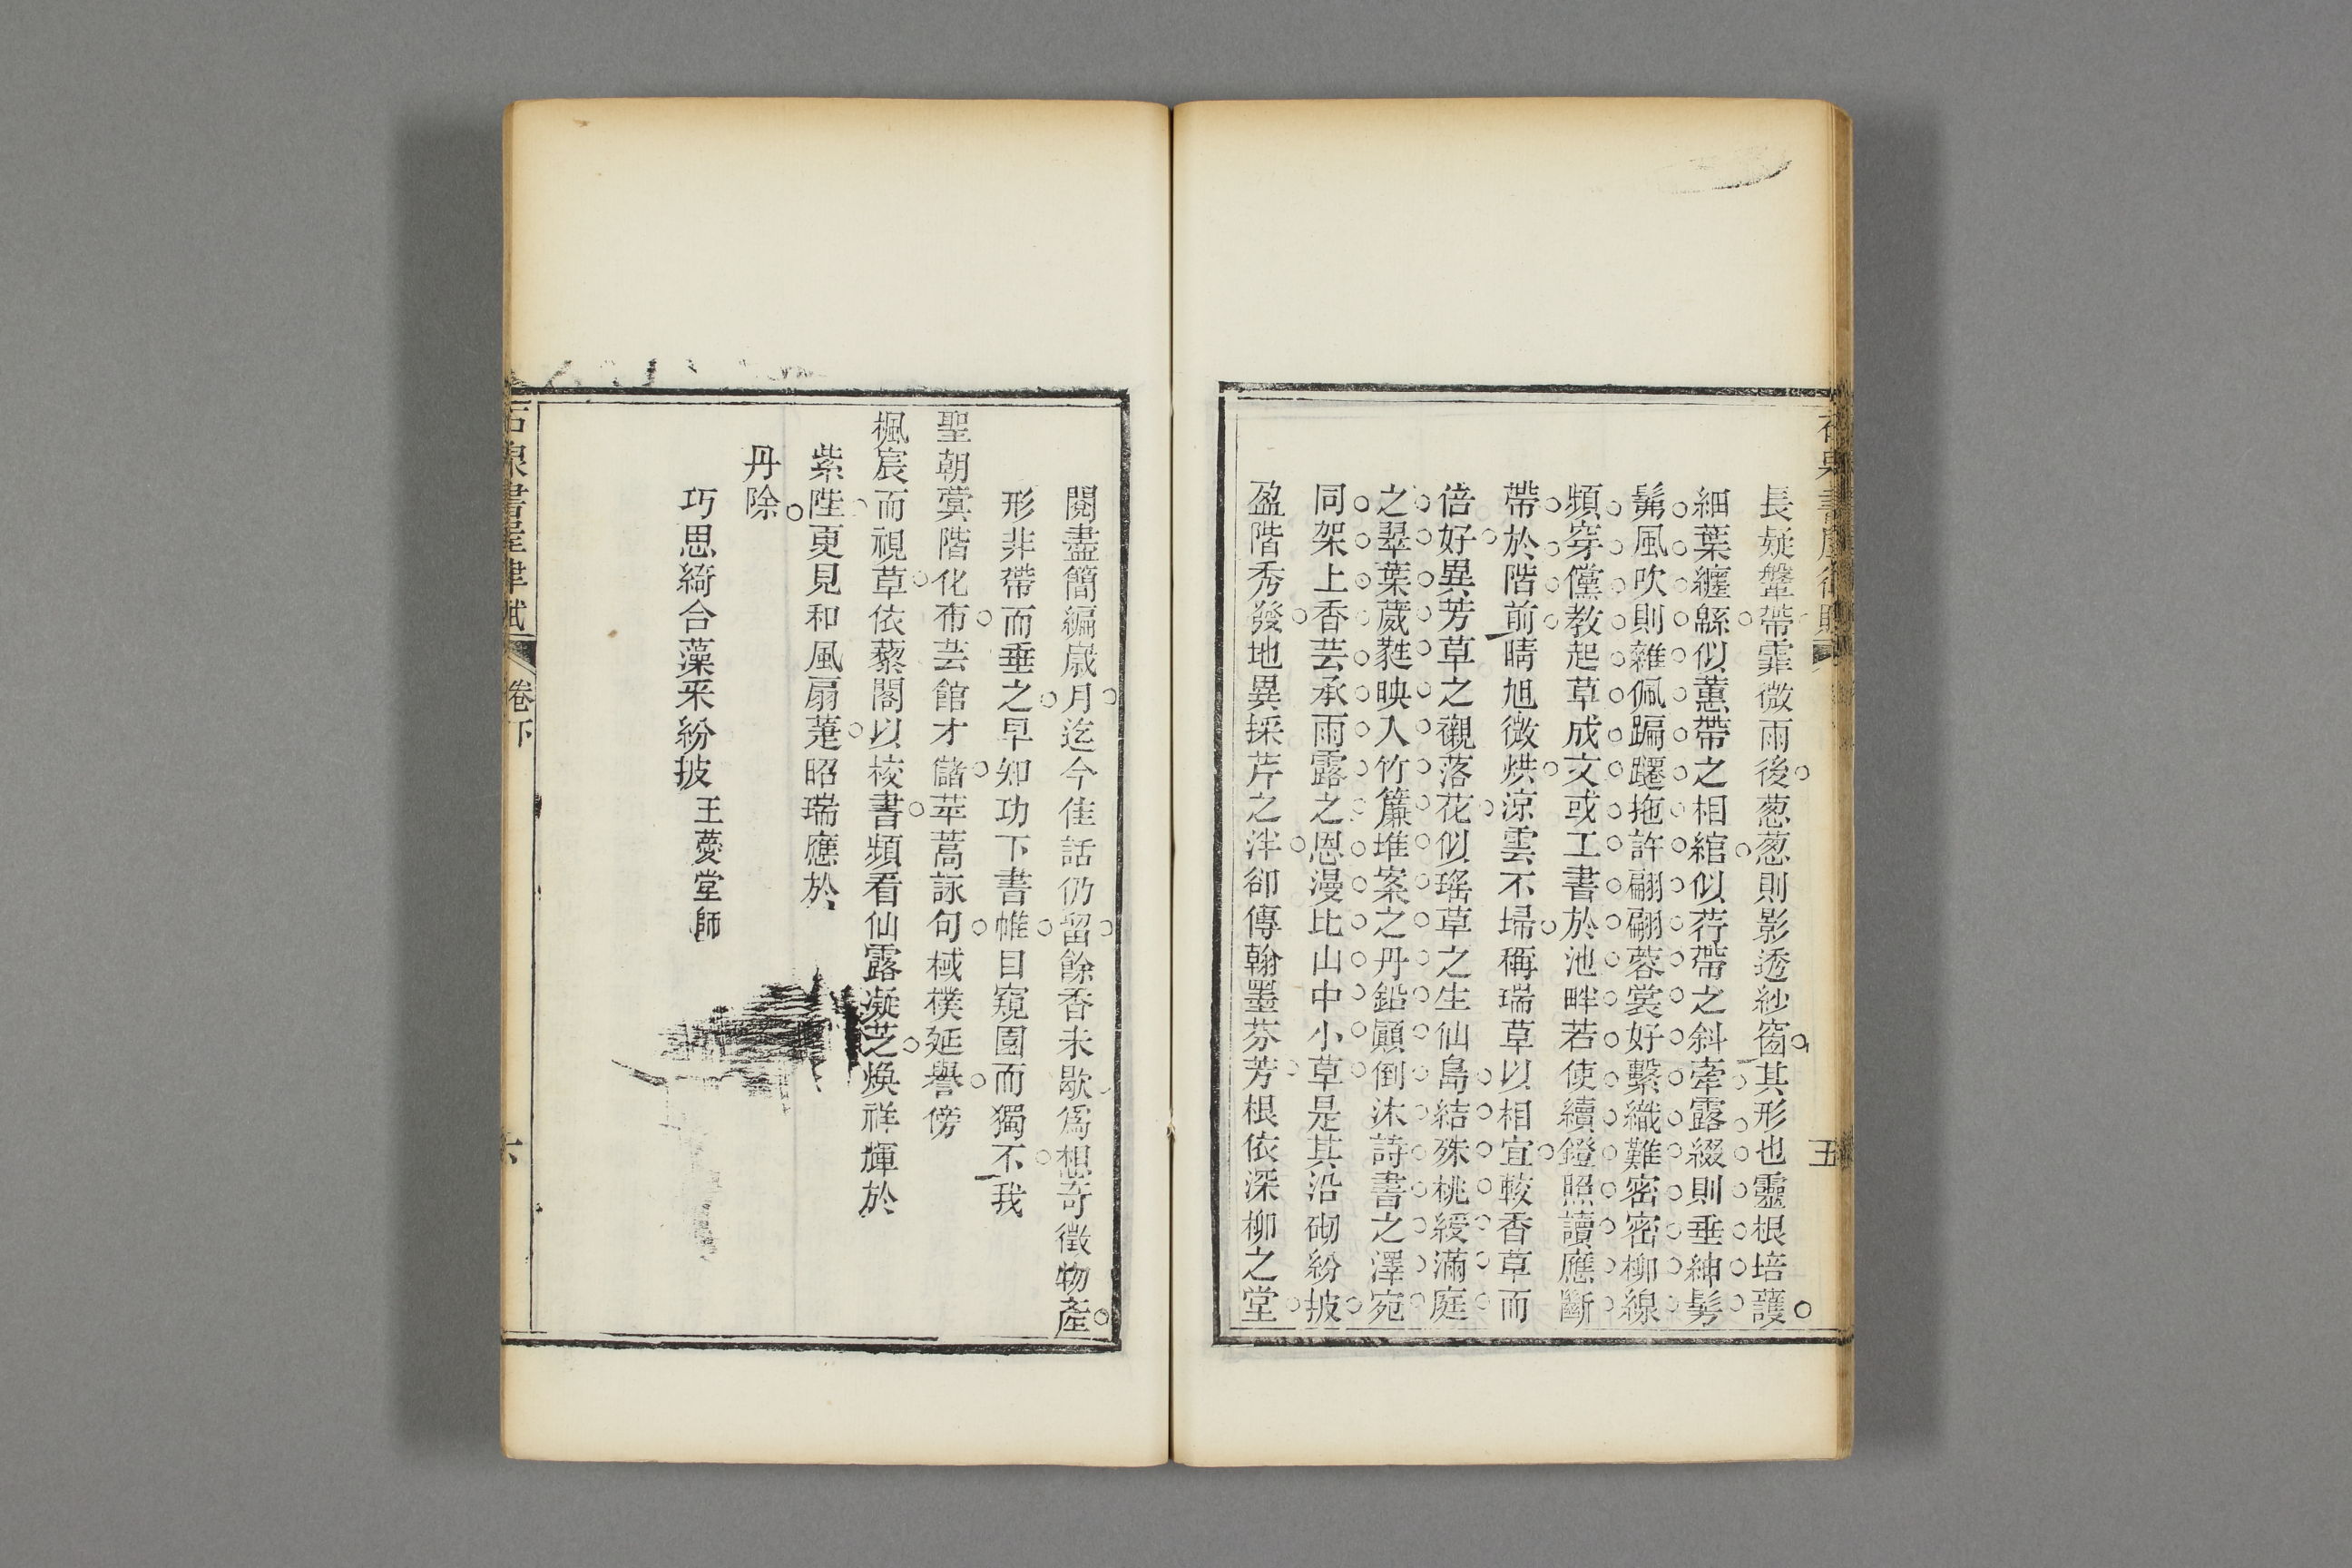 長疑鞶帶霏微雨後葱葱則影透紗窗其形也靈根培護
細葉纏緜似蕙帶之相綰似荇帶之斜牽露綴則垂紳髣
髴風吹則雜佩蹁躚拖許翩翩蓉裳好繫織難密密柳線
頻穿儻教起草成文或工書於池畔若使續鐙照讀應斷
帶於階前晴旭微烘涼雲不埽稱瑞草以相宜較香草而
倍好異芳草之襯落花似瑤草之生仙島結殊桃綬滿庭
之翠葉葳蕤映入竹簾堆案之丹鉛顚倒沐詩書之澤宛
同架上香芸承雨露之恩漫比山中小草是其沿砌紛披
盈階秀發地異採芹之泮卻傳翰墨芬芳根依深柳之堂
五
閱盡簡編歲月迄今佳話仍留餘香未歇爲想奇徵物產
形非帶而垂之早知功下書帷目窺園而獨不我
聖朝蓂階化布芸館才儲苹蒿詠句棫樸延譽傍
楓宸而視草依藜閣以校書頻看仙露凝芝煥祥輝於
紫陛更見和風扇萐昭瑞應於
丹除
巧思綺合藻采紛披 王薆堂師
卷下
六